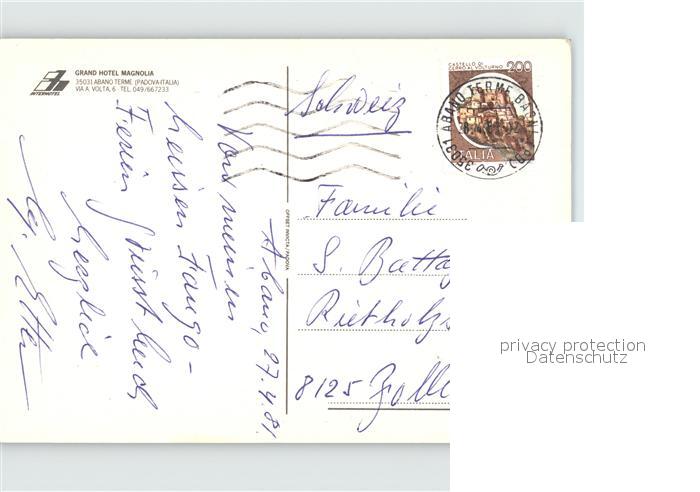 GRAND HOTEL MAGNOLIA
35031 ABANO TERME (PADOVA-ITALIA)
VIA A. VOLTA, 6 - TEL. 049/667233
INTERHOTEL
Abano, 27.4.81.
Von meinen
heissen Fango-
Ferien grüsst Euch
herzlich
OFFSET INVICTA / PADOVA
CASTELLO DI
CERRO AL VOLTURNO
200
ITALIA
ABANO TERME BAGNI
35031
Schweiz
Familie
S. Batta
Rietholz
8125 Zolli
privacy protection
Datenschutz